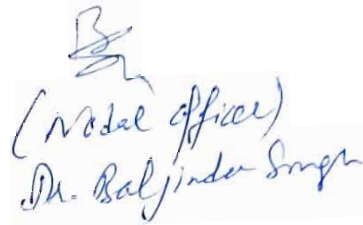 (Nodal officer)
Dr. Baljinder Singh